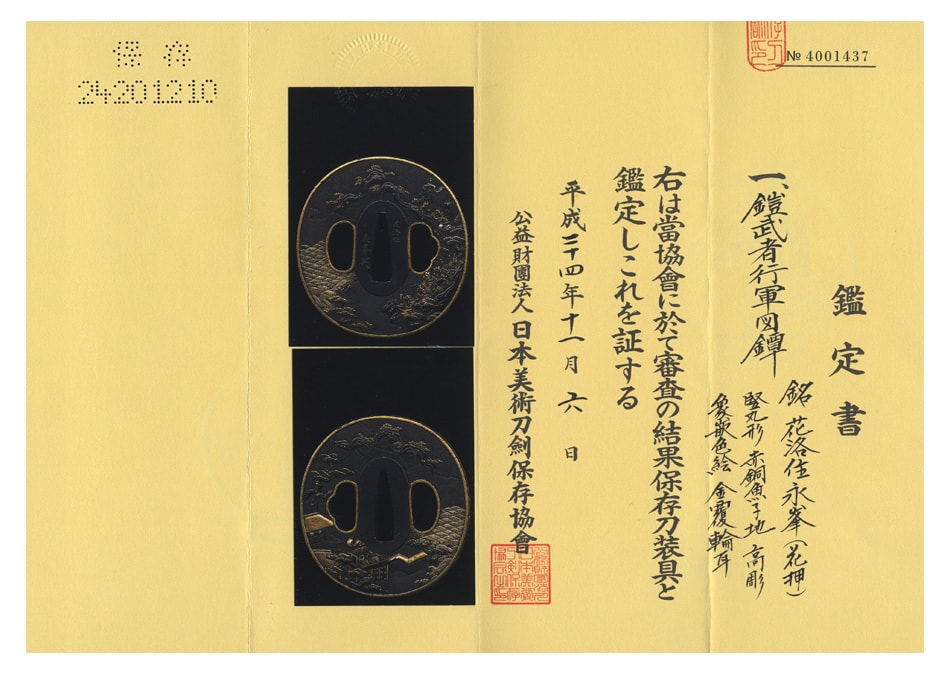 保存
24201210
№ 4001437
鑑定書
一、鎧武者行軍図鐔
銘 花洛住永峯(花押)
竪丸形 赤銅魚子地 高彫
象嵌色絵 金覆輪耳
右は當協會に於て審査の結果保存刀装具と
鑑定しこれを証する
平成二十四年十一月六日
公益財團法人 日本美術刀劍保存協會